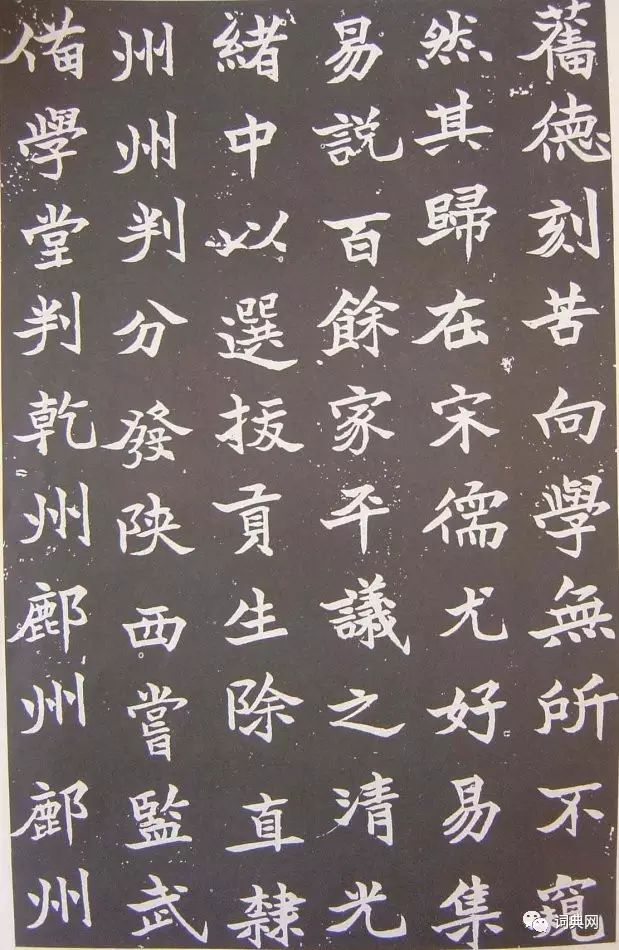 舊德刻苦向學無所不窺
然其歸在宋儒尤好易集
易說百餘家平議之清光
緒中以選拔貢生除直隸
州州判分發陝西嘗監武
備學堂判乾州鄜州鄜州
词典网